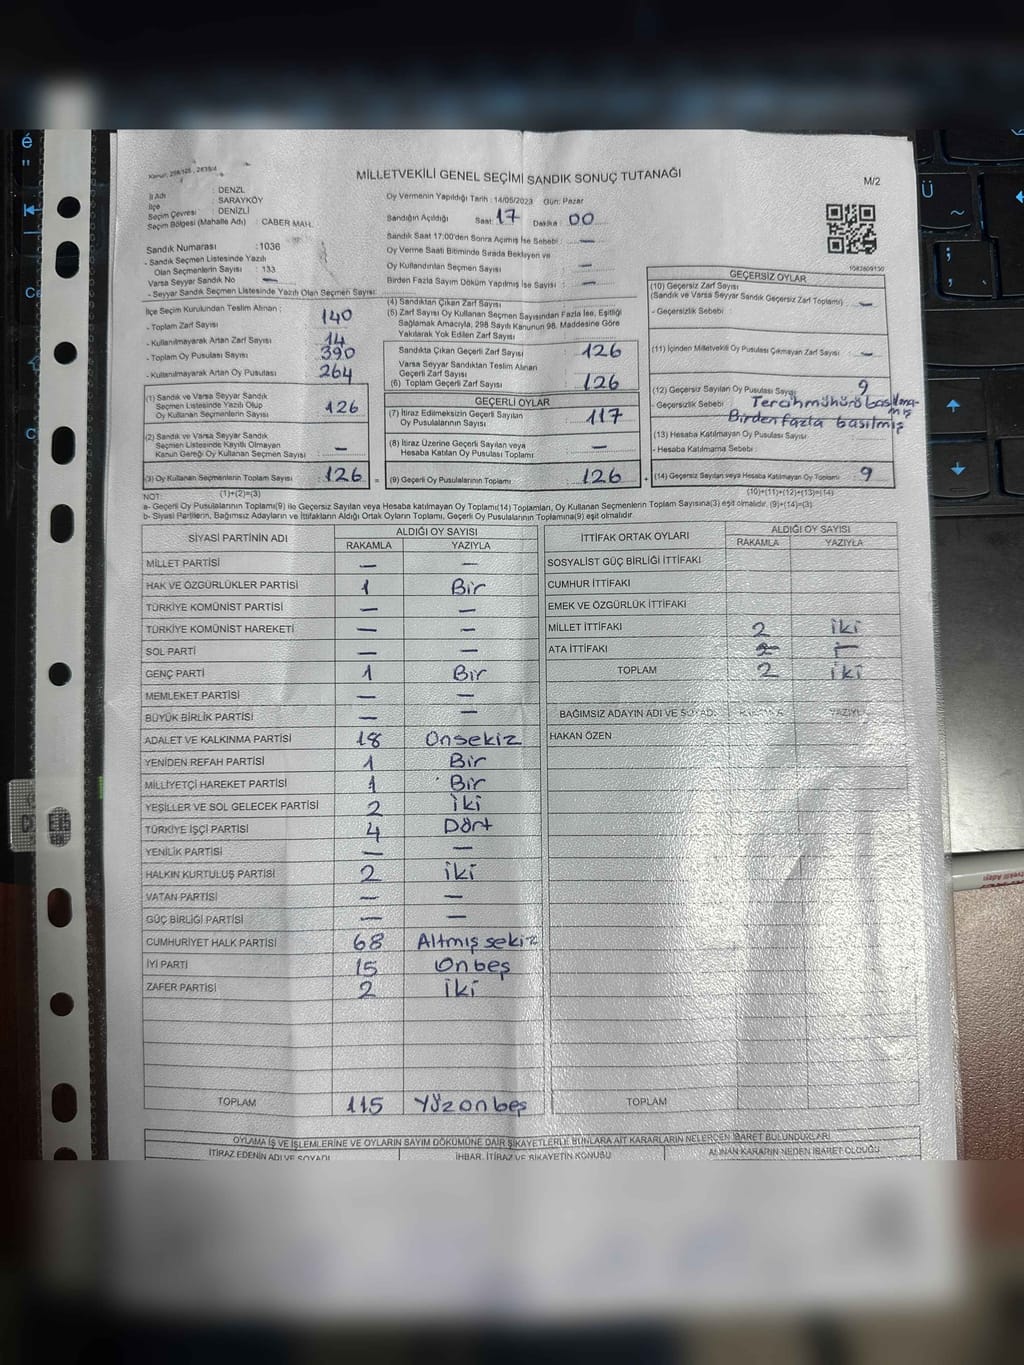 MİLLETVEKİLİ GENEL SEÇİMİ SANDIK SONUÇ TUTANAĞI
M/2
İl Adı : DENZL
İlçe : SARAYKÖY
Seçim Çevresi : DENİZLİ
Seçim Bölgesi (Mahalle Adı) : CABER MAH.
Oy Vermenin Yapıldığı Tarih : 14/05/2023 Gün: Pazar
Sandığın Açıldığı Saat: 17 Dakika : 00
Sandık Saat 17:00'den Sonra Açımış İse Sebebi : —
Oy Verme Saati Bitiminde Sırada Bekleyen ve
Oy Kullandırılan Seçmen Sayısı —
Birden Fazla Sayım Döküm Yapılmış İse Sayısı : —
Sandık Numarası : 1036
- Sandık Seçmen Listesinde Yazılı
Olan Seçmenlerin Sayısı : 133
Varsa Seyyar Sandık No —
- Seyyar Sandık Seçmen Listesinde Yazılı Olan Seçmen Sayısı:
İlçe Seçim Kurulundan Teslim Alınan ;
- Toplam Zarf Sayısı 140
- Kullanılmayarak Artan Zarf Sayısı 14
- Toplam Oy Pusulası Sayısı 390
- Kullanılmayarak Artan Oy Pusulası 264
(1) Sandık ve Varsa Seyyar Sandık
Seçmen Listesinde Yazılı Olup
Oy Kullanan Seçmenlerin Sayısı : 126
(2) Sandık ve Varsa Seyyar Sandık
Seçmen Listesinde Kayıtlı Olmayan
Kanun Gereği Oy Kullanan Seçmen Sayısı : —
(3) Oy Kullanan Seçmenlerin Toplam Sayısı : 126 =
(1)+(2)=(3)
(4) Sandıktan Çıkan Zarf Sayısı
(5) Zarf Sayısı Oy Kullanan Seçmen Sayısından Fazla İse, Eşitliği
Sağlamak Amacıyla, 298 Sayılı Kanunun 98. Maddesine Göre
Yakılarak Yok Edilen Zarf Sayısı
Sandıkta Çıkan Geçerli Zarf Sayısı : 126
Varsa Seyyar Sandıktan Teslim Alınan
Geçerli Zarf Sayısı
(6) Toplam Geçerli Zarf Sayısı : 126
GEÇERLİ OYLAR
(7) İtiraz Edilmeksizin Geçerli Sayılan
Oy Pusulasının Sayısı : 117
(8) İtiraz Üzerine Geçerli Sayılan veya
Hesaba Katılan Oy Pusulası Toplamı : —
(9) Geçerli Oy Pusulalarının Toplamı : 126 +
1083809130
GEÇERSİZ OYLAR
(10) Geçersiz Zarf Sayısı
(Sandık ve Varsa Seyyar Sandık Geçersiz Zarf Toplamı) : —
- Geçersizlik Sebebi :
(11) İçinden Milletvekili Oy Pusulası Çıkmayan Zarf Sayısı : —
(12) Geçersiz Sayılan Oy Pusulası Sayısı 9
- Geçersizlik Sebebi : Tercih mühürü basılma-
mış
Birden fazla basılmış
(13) Hesaba Katılmayan Oy Pusulası Sayısı :
- Hesaba Katılmama Sebebi :
(14) Geçersiz Sayılan veya Hesaba Katılmayan Oy Toplamı : 9
(10)+(11)+(12)+(13)=(14)
NOT:
a- Geçerli Oy Pusulalarının Toplamı(9) ile Geçersiz Sayılan veya Hesaba katılmayan Oy Toplamı(14) Toplamları, Oy Kullanan Seçmenlerin Toplam Sayısına(3) eşit olmalıdır. (9)+(14)=(3)
b- Siyasi Partilerin, Bağımsız Adayların ve İttifakların Aldığı Ortak Oyların Toplamı, Geçerli Oy Pusulalarının Toplamına(9) eşit olmalıdır.
SİYASİ PARTİNİN ADI ALDIĞI OY SAYISI
RAKAMLA YAZIYLA
MİLLET PARTİSİ — —
HAK VE ÖZGÜRLÜKLER PARTİSİ 1 Bir
TÜRKİYE KOMÜNİST PARTİSİ — —
TÜRKİYE KOMÜNİST HAREKETİ — —
SOL PARTİ — —
GENÇ PARTİ 1 Bir
MEMLEKET PARTİSİ — —
BÜYÜK BİRLİK PARTİSİ — —
ADALET VE KALKINMA PARTİSİ 18 Onsekiz
YENİDEN REFAH PARTİSİ 1 Bir
MİLLİYETÇİ HAREKET PARTİSİ 1 Bir
YEŞİLLER VE SOL GELECEK PARTİSİ 2 İki
TÜRKİYE İŞÇİ PARTİSİ 4 Dört
YENİLİK PARTİSİ — —
HALKIN KURTULUŞ PARTİSİ 2 İki
VATAN PARTİSİ — —
GÜÇ BİRLİĞİ PARTİSİ — —
CUMHURİYET HALK PARTİSİ 68 Altmış sekiz
İYİ PARTİ 15 Onbeş
ZAFER PARTİSİ 2 İki
TOPLAM 115 Yüzonbeş
İTTİFAK ORTAK OYLARI ALDIĞI OY SAYISI
RAKAMLA YAZIYLA
SOSYALİST GÜÇ BİRLİĞİ İTTİFAKI
CUMHUR İTTİFAKI
EMEK VE ÖZGÜRLÜK İTTİFAKI
MİLLET İTTİFAKI 2 İki
ATA İTTİFAKI
TOPLAM 2 İki
BAĞIMSIZ ADAYIN ADI VE SOYADI RAKAMLA YAZIYLA
HAKAN ÖZEN
TOPLAM
OYLAMA İŞ VE İŞLEMLERİNE VE OYLARIN SAYIM DÖKÜMÜNE DAİR ŞİKAYETLERLE BUNLARA AİT KARARLARIN NELERDEN İBARET BULUNDUKLARI
İTİRAZ EDENİN ADI VE SOYADI İHBAR, İTİRAZ VE ŞİKAYETİN KONUSU ALINAN KARARIN NEDEN İBARET OLDUĞU